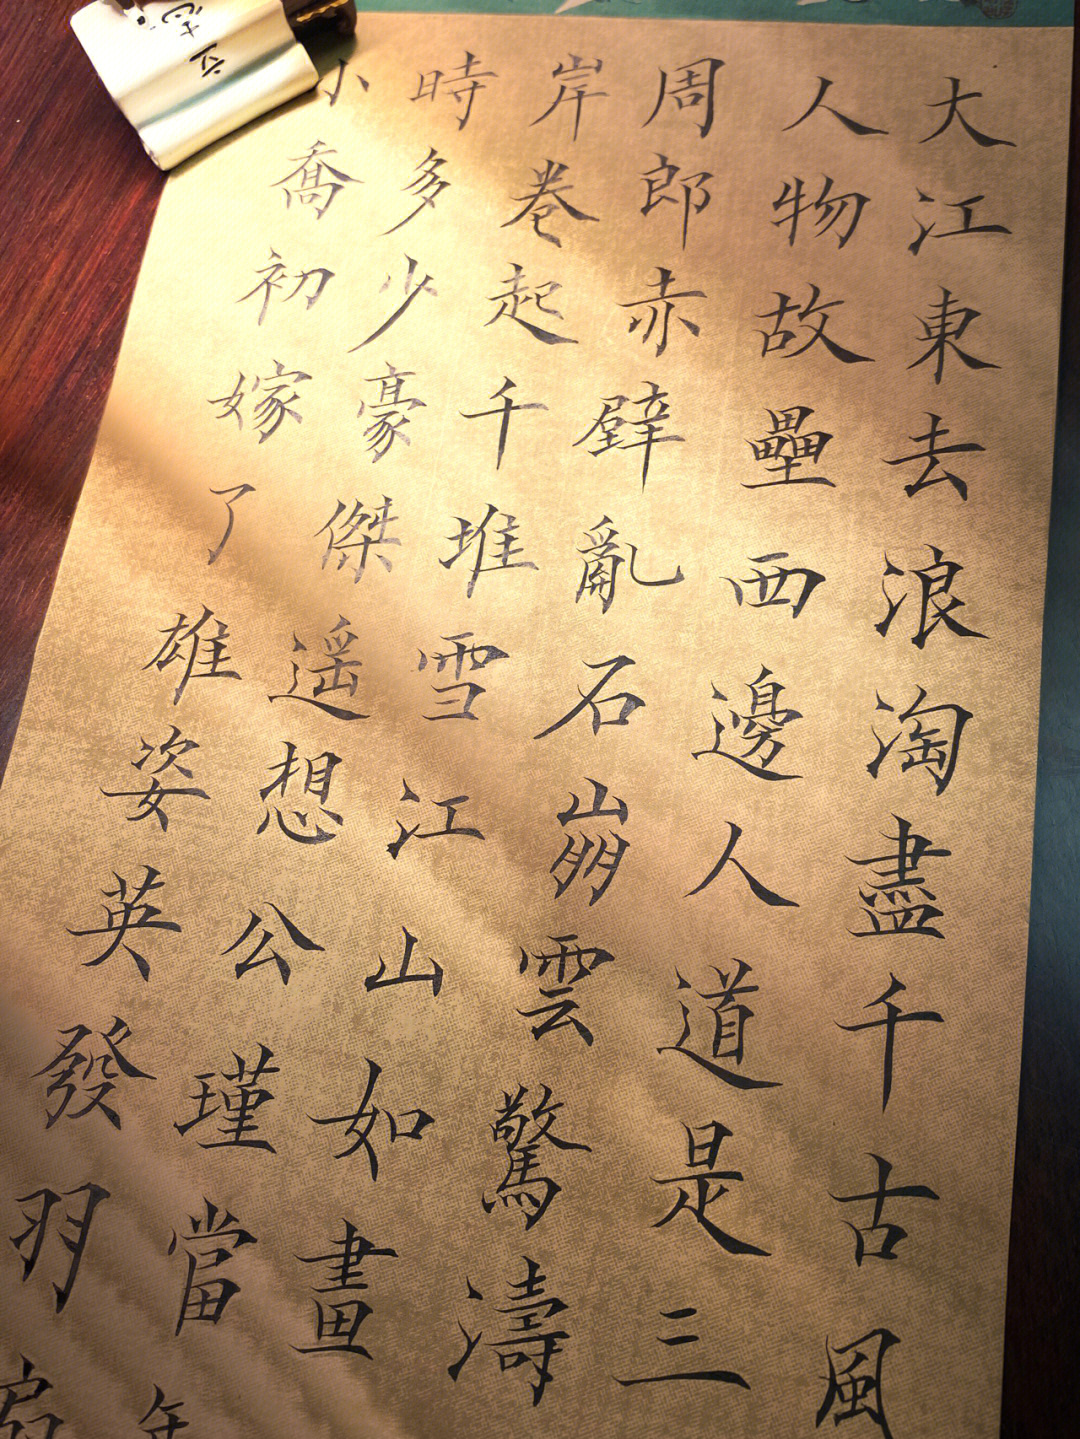 大江東去浪淘盡千古風
人物故壘西邊人道是三
周郎赤壁亂石崩雲驚濤
岸卷起千堆雪江山如畫
時多少豪傑遥想公瑾當年
小喬初嫁了雄姿英發羽扇
立志